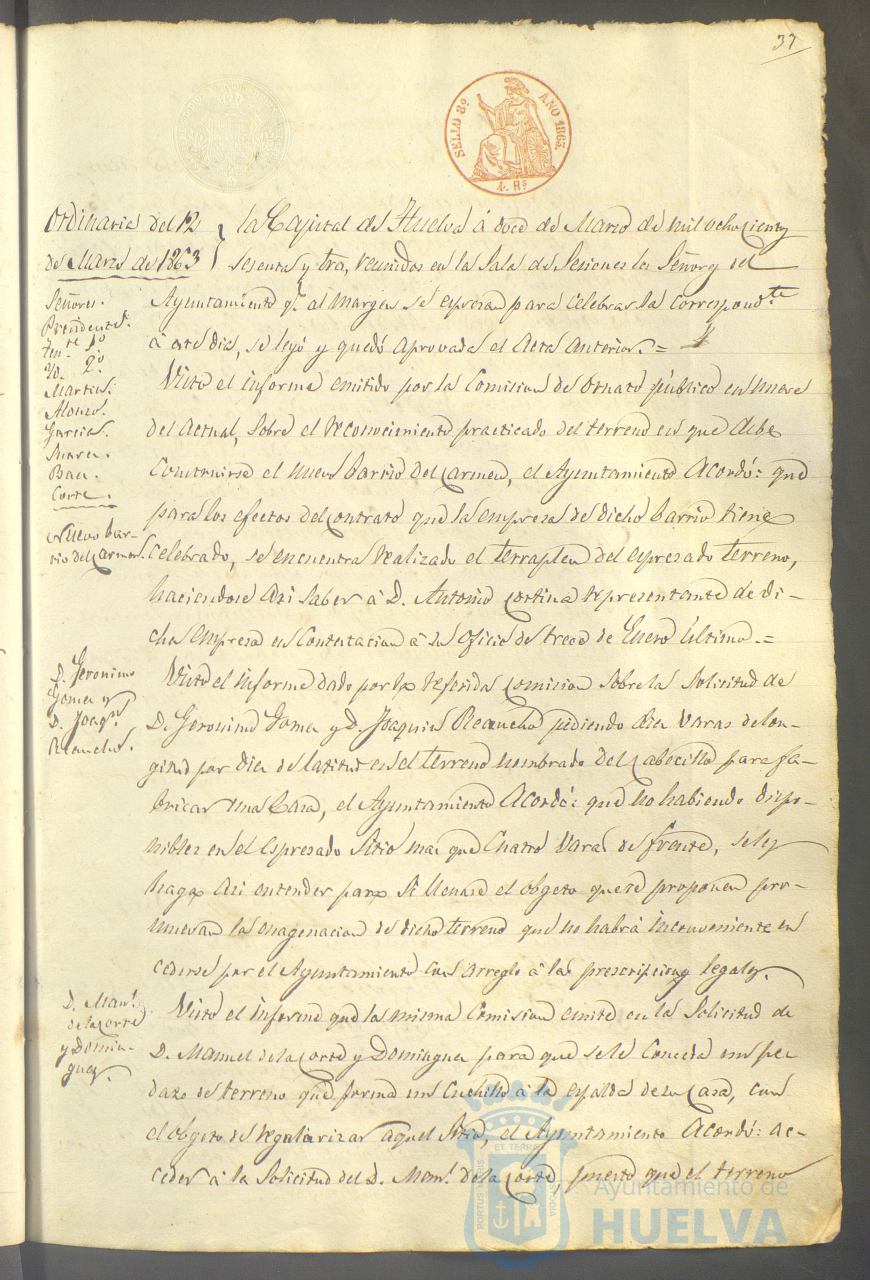 37
SELLO 8º AÑO 1863.
4. Rs
Ordinaria del 12
de Marzo de 1863
la Capital de Huelva á doce de Marzo de mil ochocientos
sesenta y tres, reunidos en la Sala de Sesiones los Señores del
Señores.
Presidente
Tente 1º
Yd. 2º
Martin.
Alonso.
Garcia.
Baez.
Corte.
Ayuntamiento qe. al margen se espresan para celebrar la correspondte
á este dia, se leyó y quedó aprovada el Acta anterior. =
Visto el informe emitido por la Comision de Ornato público en nueve
del actual, sobre el reconocimiento practicado del terreno en que debe
construirse el nuevo barrio del Carmen, el Ayuntamiento Acordó: que
para los efectos del contrato que la empresa de dicho barrio tiene
Nuevo bar-
rio del Carmen.
celebrado, se encuentra realizado el terraplen del espresado terreno,
haciendose asi saber á D. Antonio Cortina representante de di-
cha empresa en contestacion á su oficio de trece de Enero último. =
D. Geronimo
Gomez y
D. Joaqn.
Reancho.
Visto el informe dado por la referida Comision sobre la solicitud de
D. Geronimo Gomez y D. Joaquin Reancho pidiendo diez varas de lon-
gitud por diez de latitud en el terreno nombrado del Cabecillo para fa-
bricar una Casa, el Ayuntamiento Acordó: que no habiendo dispo-
nibles en el espresado sitio mas que cuatro varas de frente, se les
haga asi entender para si llenase el obgeto que se proponen pro-
muevan la enagenacion de dicho terreno que no habrá inconveniente en
cederse por el Ayuntamiento con arreglo á las prescripciones legales.
D. Manl.
de la Corte
y Domin-
guez.
Visto el informe que la misma Comision emite en la solicitud de
D. Manuel de la Corte y Dominguez para que se le conceda un pe
dazo de terreno que forma un Cuchillo á la espalda de su Casa, con
el obgeto de regularizar aquel sitio, el Ayuntamiento Acordó: ac-
ceder á la solicitud del D. Manl. de la Corte, puesto que el terreno
Ayuntamiento de
HUELVA